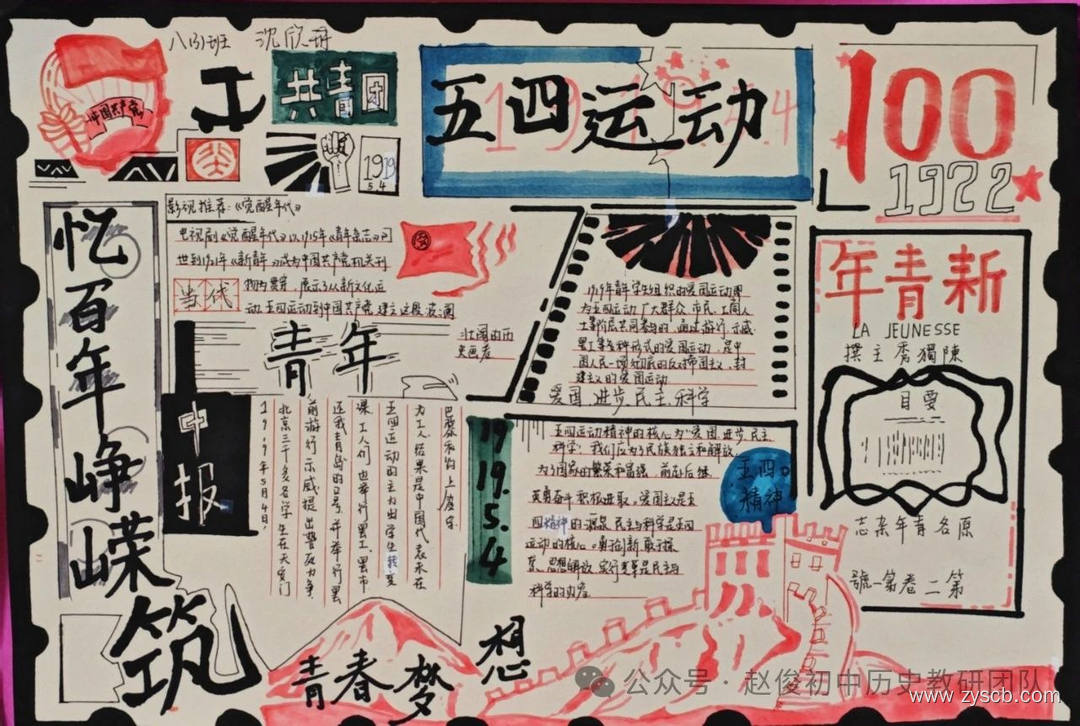 八(3)班 沈欣冉
中国共产党
共青团
1919
5.4
五四运动
1919.5.4
100
1922
忆百年峥嵘
筑
青春梦想
影视推荐:《觉醒年代》
电视剧《觉醒年代》以1915年《青年杂志》问
世到1921年《新青年》成为中国共产党机关刊
物为贯穿,展示了从新文化运
动、五四运动到中国共产党建立这段波澜
壮阔的历
史画卷
当代
青年
中报
1919年5月4日,
北京三千多名学生在天安门
前游行示威提出誓死力争,
还我青岛的口号,并举行罢
课,工人们也举行罢工、罢市
五四运动的主力由学生转至
为工人结果是中国代表未在
巴黎和约上签字
1919年青年学生组织的爱国运动即
为五四运动,广大群众、市民、工商人
士等阶层共同参与的,通过游行、示威
罢工等多种形式的爱国运动,是中
国人民一项彻底的反对帝国主义、封
建主义的爱国运动
爱国、进步、民主、科学
1919.5.4
五四运动精神的核心为"爱国、进步、民主、
科学",我们应为了民族独立和解放,
为了国家的繁荣和富强,前赴后继,
英勇奋斗,积极进取,爱国主义是五
四精神的源泉,民主与科学是五四
运动的核心。勇于创新、敢于探
索、思想解放、实行变革是民主与
科学的内容
五四
精神
年青新
LA JEUNESSE
撰主秀獨陳
目要
志杂年青名原
號一第卷二第
公众号·赵俊初中历史教研团队
www.zyscb.com